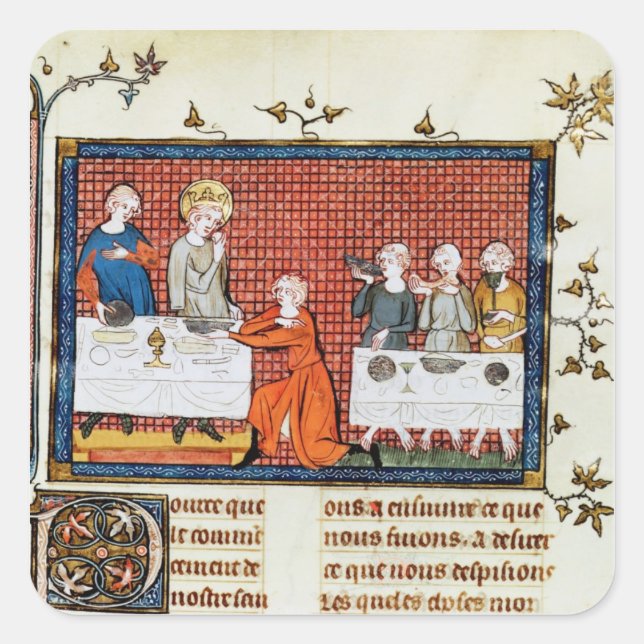 ource que
le comme
cement de
nostre sau
ous a custume ce que
nous fuions. a desirer
ce que nous despisions
les queles choses mon